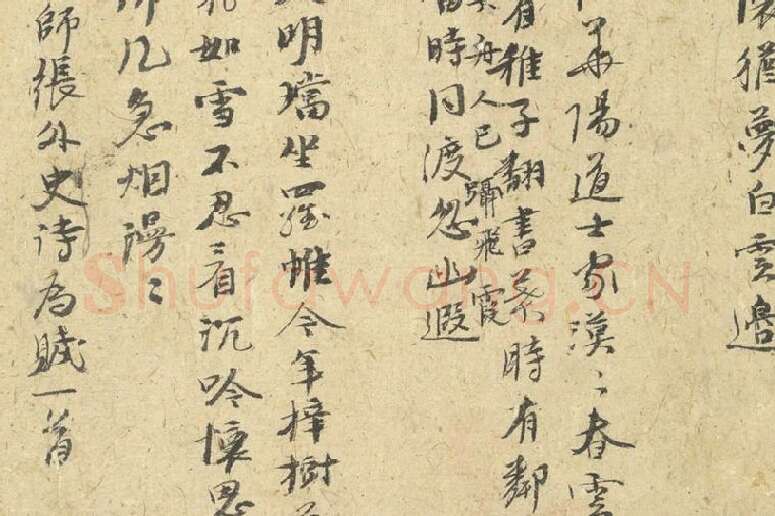 猶夢白雲邊
華陽道士家漠〻春雲
有稚子翻書葉時有鄰
舟人已躡飛霞
時同渡忽幽遐
明璫坐羅帷今年擇樹
如雪不忍看沉吟懷思
几急烟漫〻
師張外史詩為賦一首
Shufawang.CN